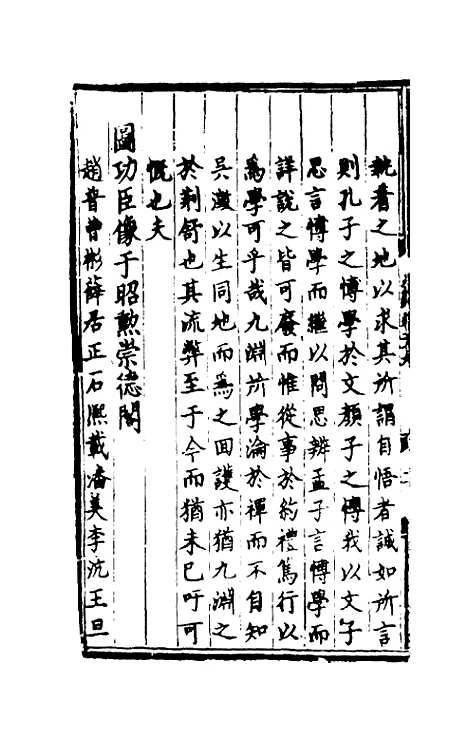 執着之地以求其所謂自悟者誠如所言
則孔子之博學於文顏子之博我以文子
思言博學而繼以問思辨孟子言博學而
詳說之皆可廢而惟從事於約禮篤行以
為學可乎哉九淵所學淪於禪而不自知
吳澂以生同地而為之回護亦猶九淵之
於荆舒也其流弊至于今而猶未已吁可
慨也夫
圖功臣像于昭勲崇德閣
趙普曹彬薛居正石熈載潘美李沆王旦